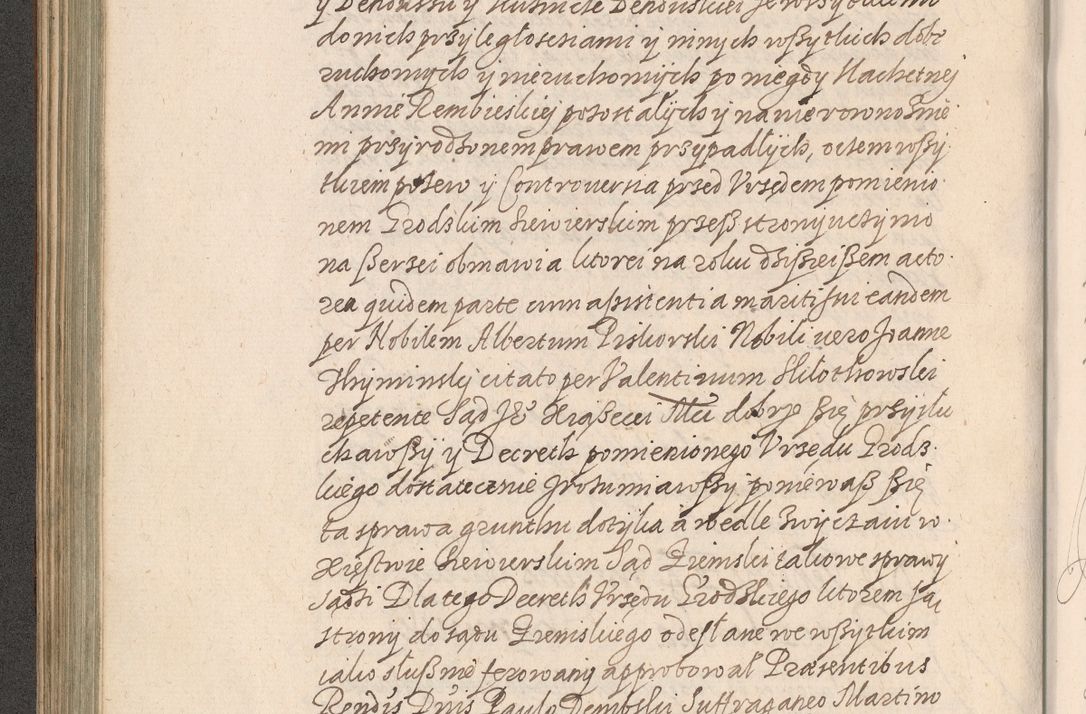 y Dendassu y Kusnicze Denduskiei ze wssytkiemi
do nich przyległosciami y ninych wßytkich dobr
ruchomych y nieruchomych po niegdy Slachetnej
Annie Dembieskiej pozostałych y na nie rowno z nie
mi przyrodzonem prawem przypadłych, o czem wßy
tkiem potem y Controuersia przed Vrzędem pomienio
nem Grodzkim Siewierskim przeß strony uczynio
na ßerzei obmawia ktorei na roku dzißieißem acto
rea quidem parte cum aßistentia mariti sui eandem
per Nobilem Albertum Piskorski Nobili uero Joanne
Thyminsky citato per Valentinum Skilothowski
repetente Sąd JE° Xiąßecei Mci dobrze ßię przysłu
chawßy y Decreth pomienionego Vrzędu Grodz
kiego dostatecznie zrozumiawßy poniewaß ßię
ta sprawa grunthu dotyka a wedle zwyczaiu w
Xięstwie Siewierskim Sąd Ziemski takowe sprawy
sądzi Dla tego Decreth Vrzędu Grodzkiego ktorem są
strony do sądu Ziemskiego odesłane we wßytkim
iako słußnie ferowany approbował Præsentibus
Rendis Dnis Paulo Dembski Suffraganeo Martino